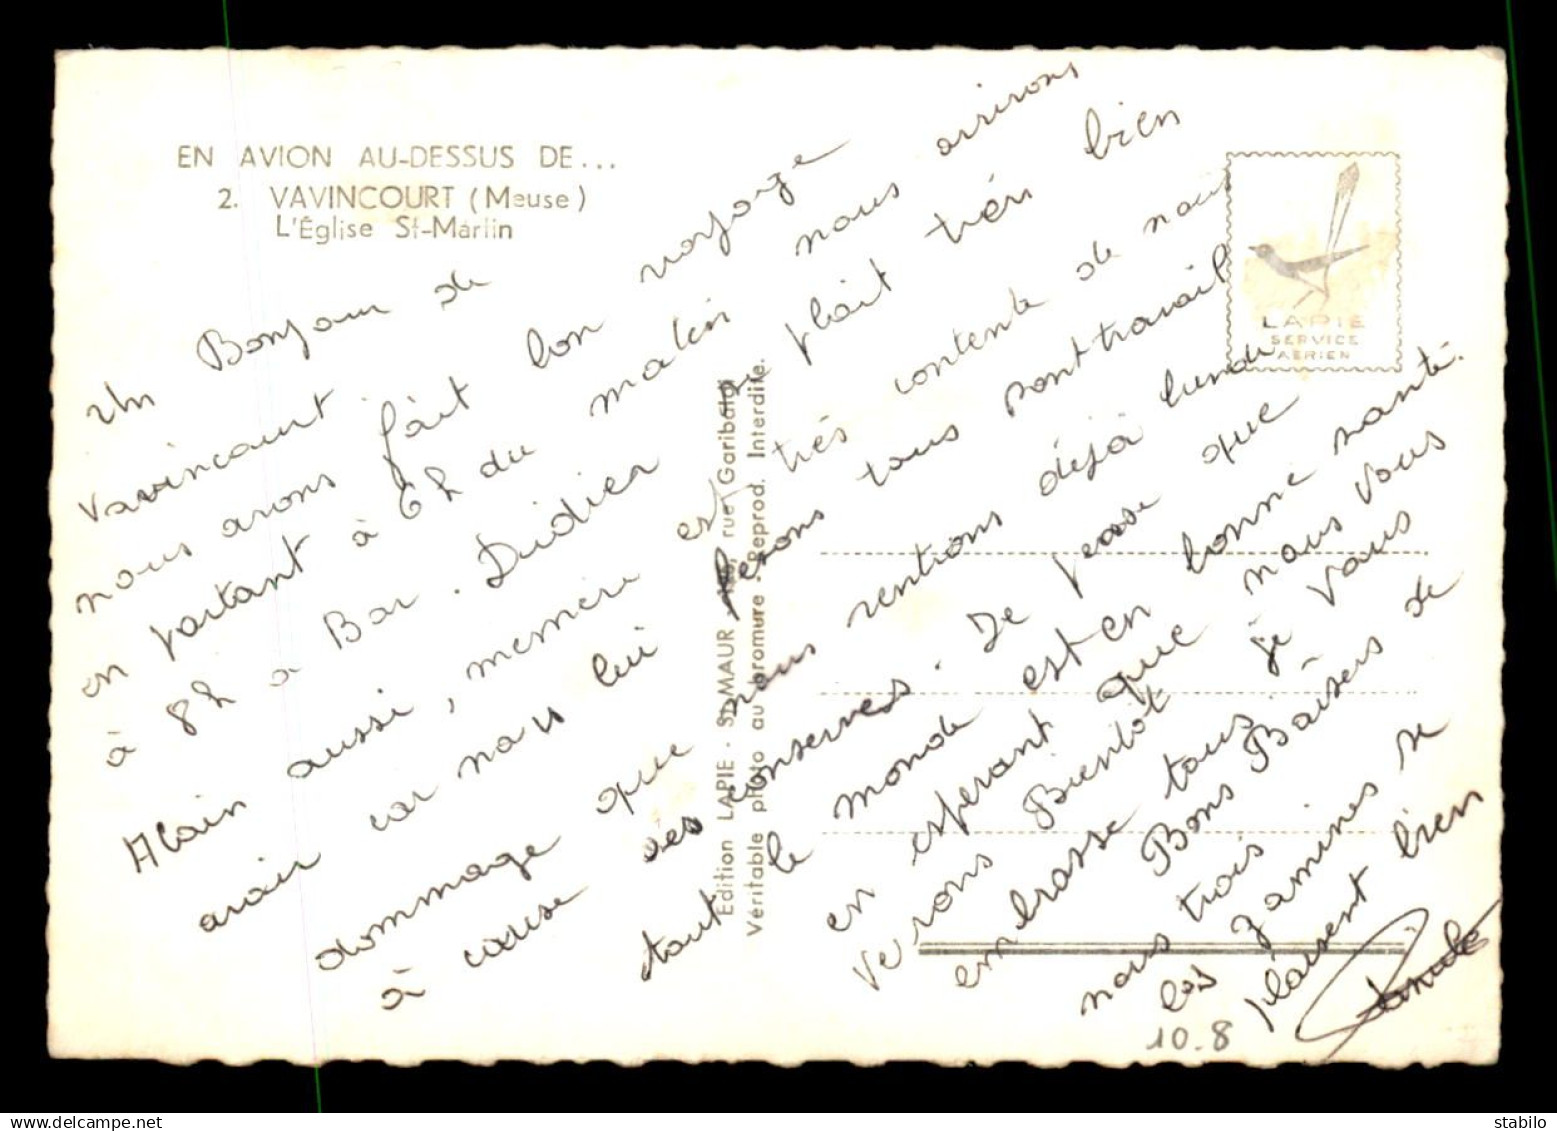 EN AVION AU-DESSUS DE...
2. VAVINCOURT (Meuse)
L'Église St-Martin
LAPIE
SERVICE
AERIEN
Edition LAPIE - St-MAUR rue Garibaldi
Véritable photo au bromure - Reprod. Interdite.
Un Bonjour de
Vavincourt.
nous avons fait bon voyage
en partant à 6h du matin nous arrivons
à 8h a Bar. Didier se plait très bien
Alain aussi, mémère est très contente de nous
avoir car nous lui ferons tous son travail
dommage que nous rentions déjà lundi
à cause des conserves. Je pense que
tout le monde est en bonne santé.
en esperant que nous vous
verons Bientôt je vous
embrasse tous
Bons Baisers de
nous trois
les gamines se
plaisent bien
10.8